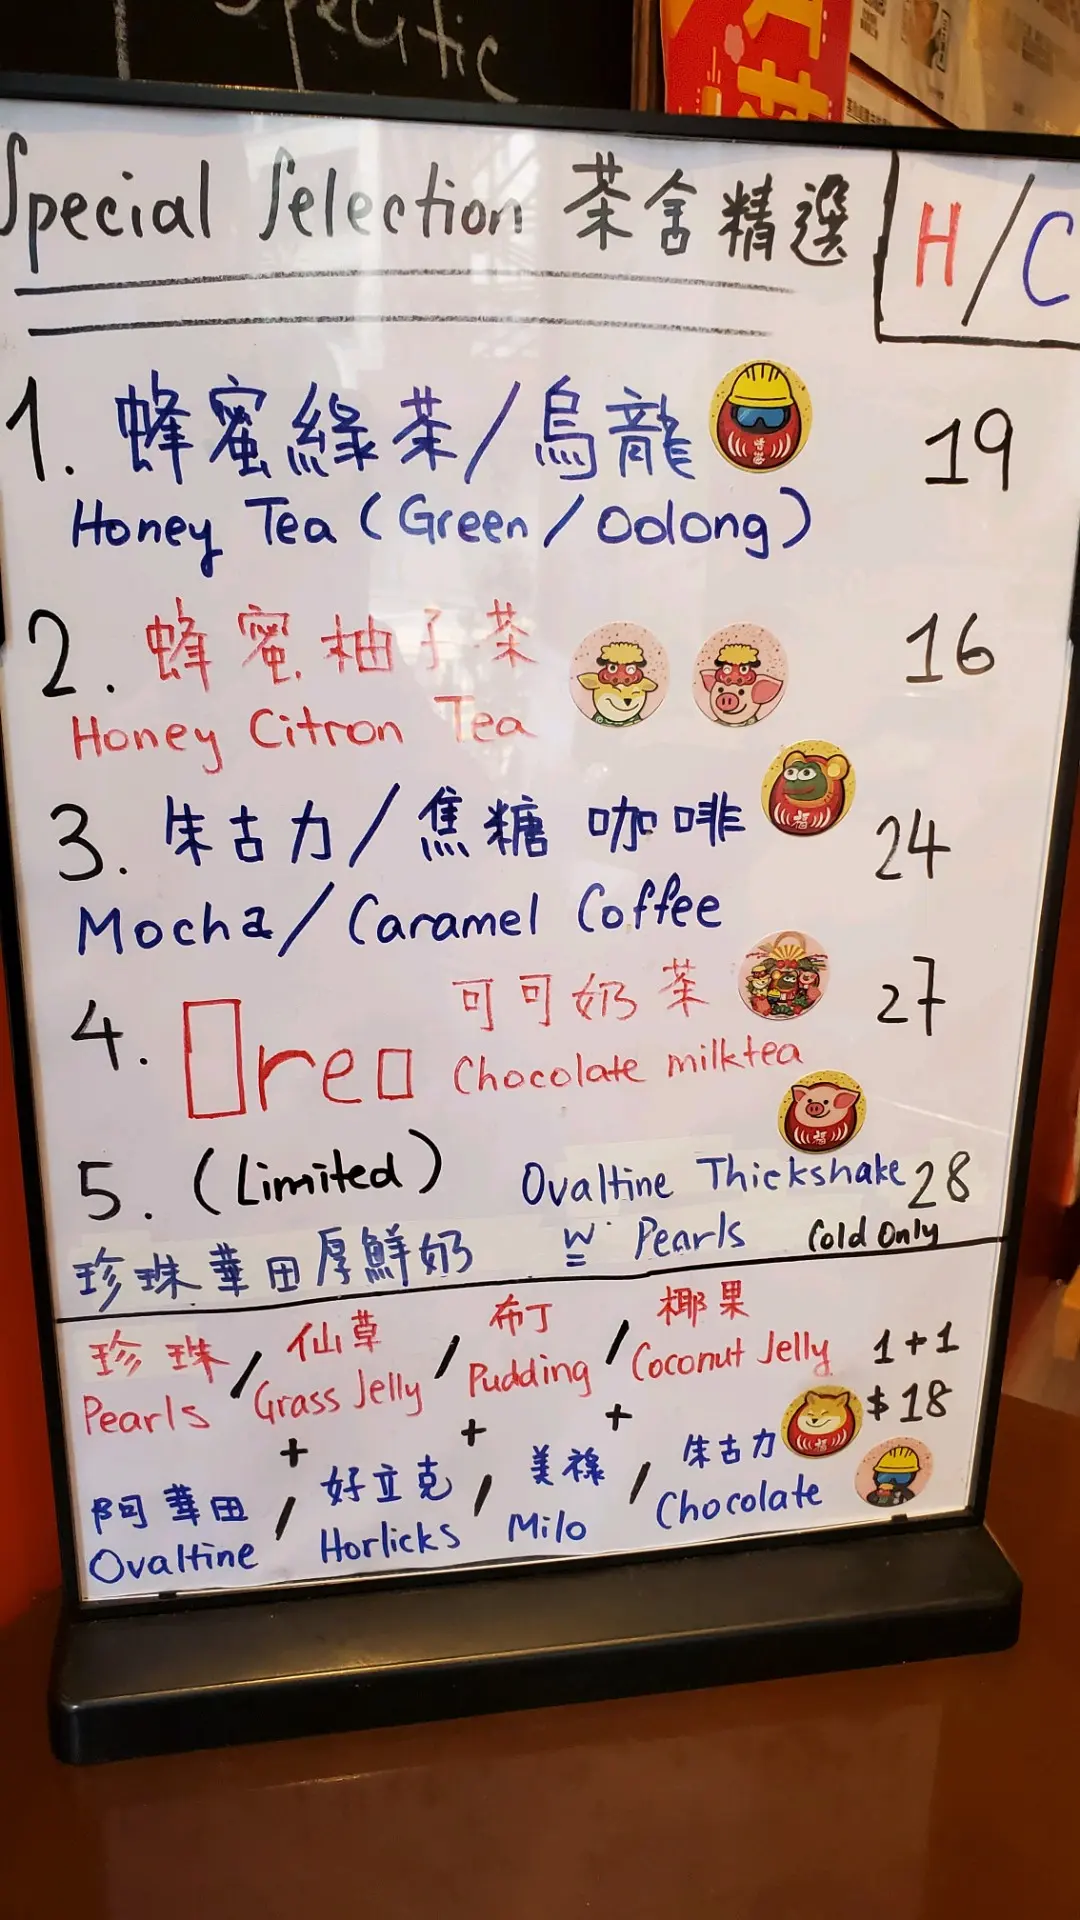 Specific
Special Selection 茶舍精選 H/C
1. 蜂蜜綠茶/烏龍 19
Honey Tea (Green/Oolong)
2. 蜂蜜柚子茶 16
Honey Citron Tea
3. 朱古力/焦糖 咖啡 24
Mocha/Caramel Coffee
4. Oreo 可可奶茶 27
Chocolate milktea
5. (Limited) Ovaltine Thickshake 28
珍珠華田厚鮮奶 w. Pearls Cold Only
珍珠/仙草/布丁/椰果
Pearls Grass Jelly Pudding Coconut Jelly 1+1
$18
+ + +
阿華田/好立克/美祿/朱古力
Ovaltine Horlicks Milo Chocolate